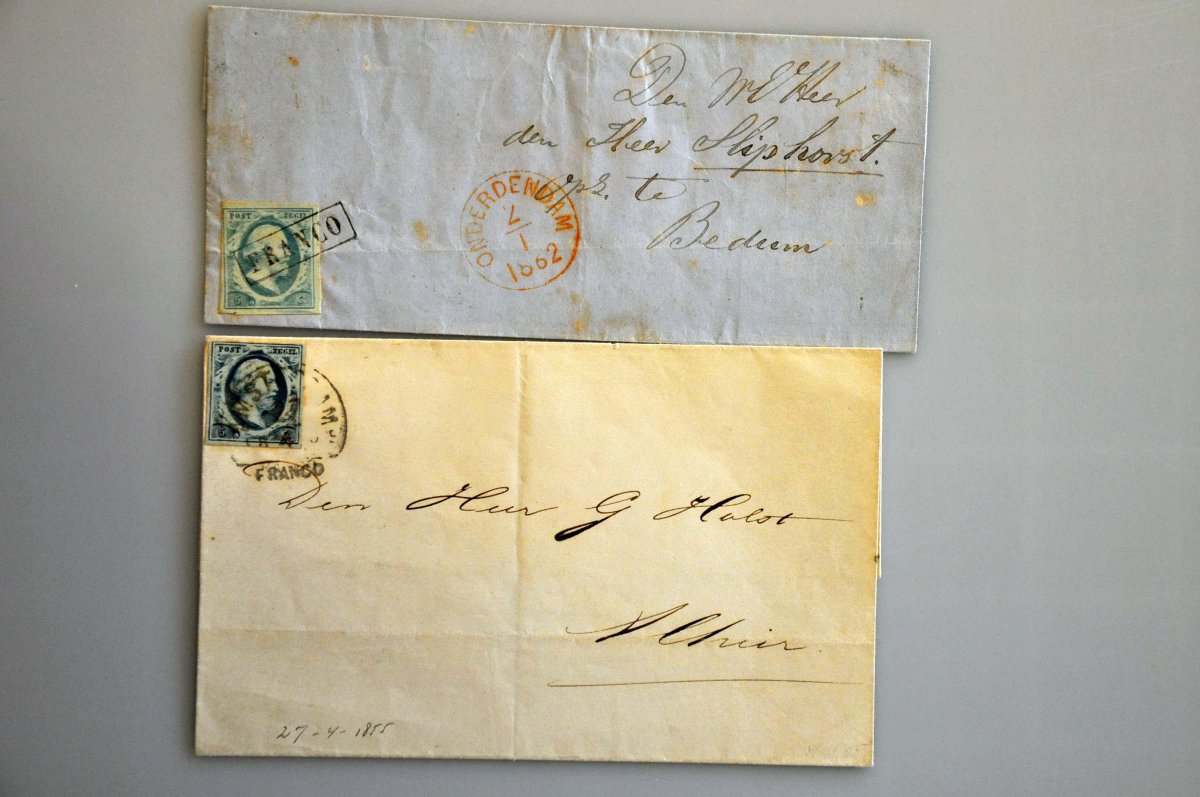 Den W Heer
den Heer Sliphorst.
te
Bedum
ONDERDENDAM
1
1862
POST ZEGEL
FRANCO
5 C
POST ZEGEL
5
FRANCO
Den Heer G Holst
Alhier
27-4-1855